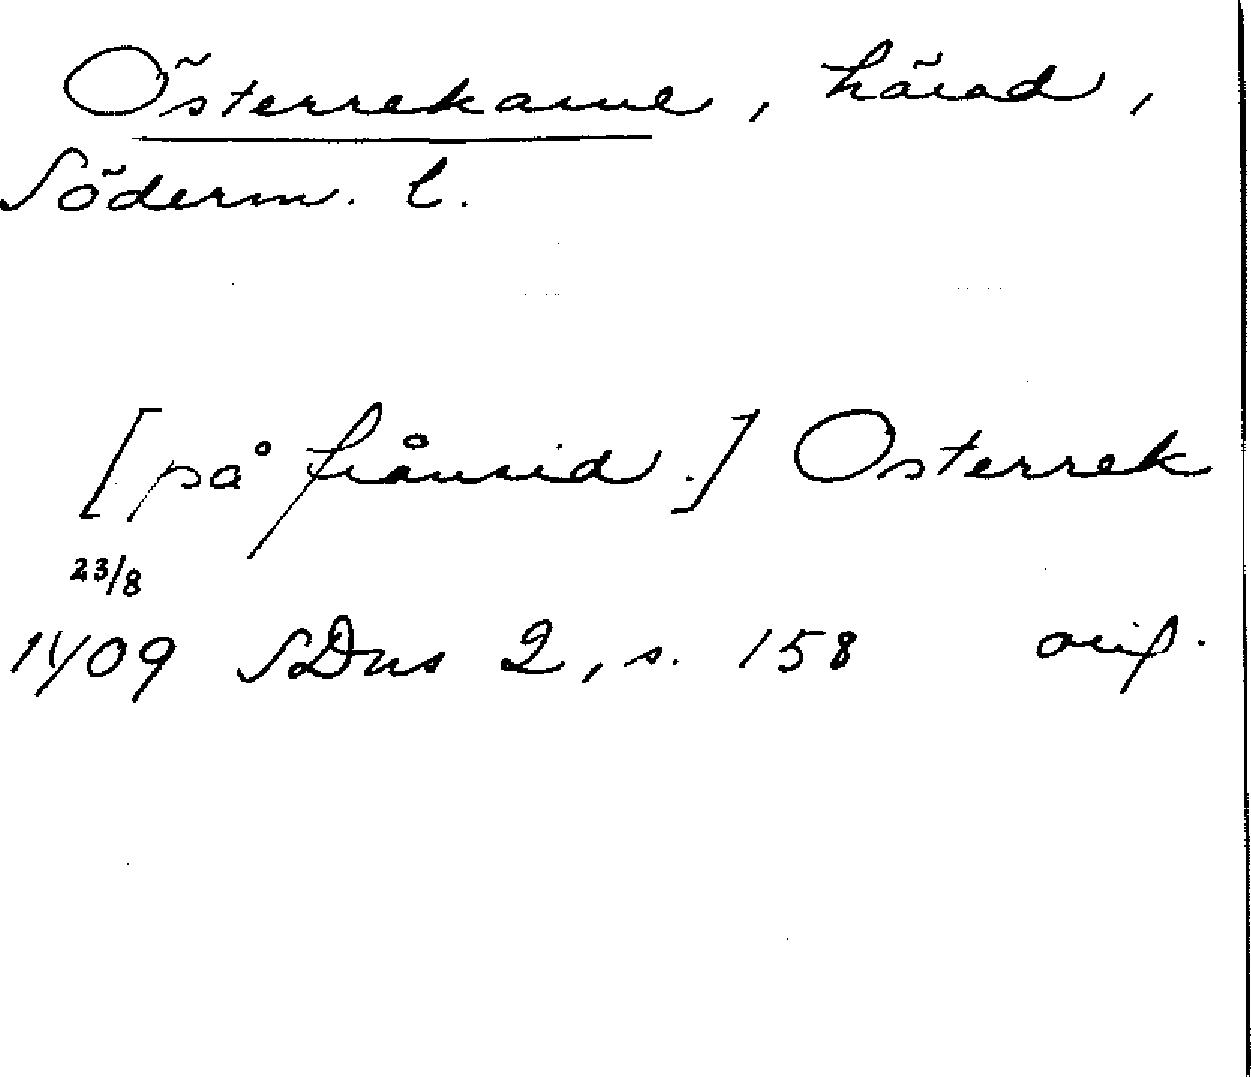 Österrekarne, härad,
Söderm. l.
[på frånsid.] Osterrek
23/8
1409 SDns 2, s. 158 orig.